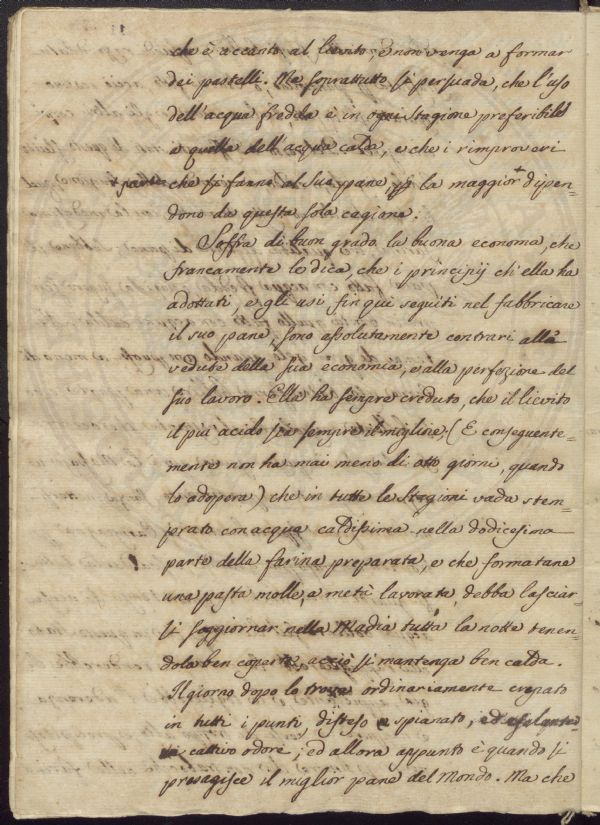 che è accanto al lievito, e non venga a formar
dei pastelli. Ma soprattutto si persuada, che l'uso
dell'acqua fredda è in ogni stagione preferibile
a quella dell'acqua calda, e che i rimproveri
+ parte che si fanno al suo pane, p la maggior + dipen=
dono da questa sola cagione.
Soffra di buon grado la buona economa, che
francamente lo dica, che i principij ch'ella ha
adottati, e gli usi fin qui seguiti nel fabbricare
il suo pane, sono assolutamente contrari alle
vedute della sua economia, e alla perfezione del
suo lavoro. Ella ha sempre creduto, che il lievito
il più acido sia sempre il migliore, (E conseguente=
mente non ha mai meno di otto giorni, quando
lo adopera) che in tutte le stagioni vada stem=
prato con acqua caldissima nella dodicesima
parte della farina preparata, e che formatane
una pasta molle, a metà lavorata, debba lasciar=
si soggiornar nella Madia tutta la notte tenen=
dola ben coperta, acciò si mantenga ben calda.
Il giorno dopo lo trova ordinariamente crepato
in tutti i punti, disteso e spianato, ed
cattivo odore; ed allora appunto è quando si
presagisce il miglior pane del Mondo. Ma che